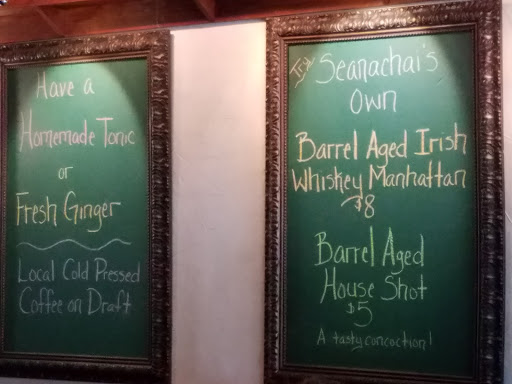 Have a
Homemade Tonic
or
Fresh Ginger
Local Cold Pressed
Coffee on Draft
Try
Seanachai's
Own
Barrel Aged Irish
Whiskey Manhattan
$8
Barrel Aged
House Shot
$5
A tasty concoction!